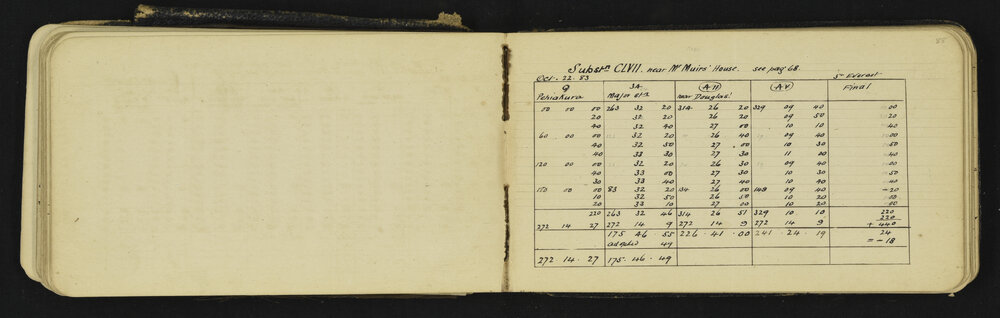 Substn CLVII. near Mr Muirs' House. see pag 68.
Oct. 22. 83
5" Everest
9 3A A II A V Final
Pehiakura Major Stn near Douglas'
00 00 00 263 32 20 314 26 20 329 09 40 00
20 32 20 26 20 09 50 20
40 32 40 27 00 10 10 40
60 00 00 32 20 26 40 09 40 00
40 32 50 27 00 10 30 50
40 33 30 27 30 11 00 40
120 00 00 32 20 26 30 09 40 00
40 33 00 27 30 10 30 50
30 33 40 27 40 10 40 40
150 00 00 83 32 20 134 26 00 149 09 40 -20
10 32 50 26 50 10 20 00
20 33 10 27 00 10 20 00
220 263 32 46 314 26 51 329 10 10 220
220
272 14 27 272 14 9 272 14 9 272 14 9 + 440
175 46 55 226 . 41 . 00 241 . 24 . 19 24
adopted 49 = - 18
272 . 14 . 27 175 . 46 . 49